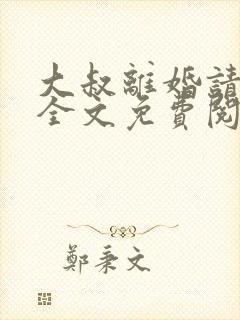 大叔離婚請
全文免費閱
鄭秉文